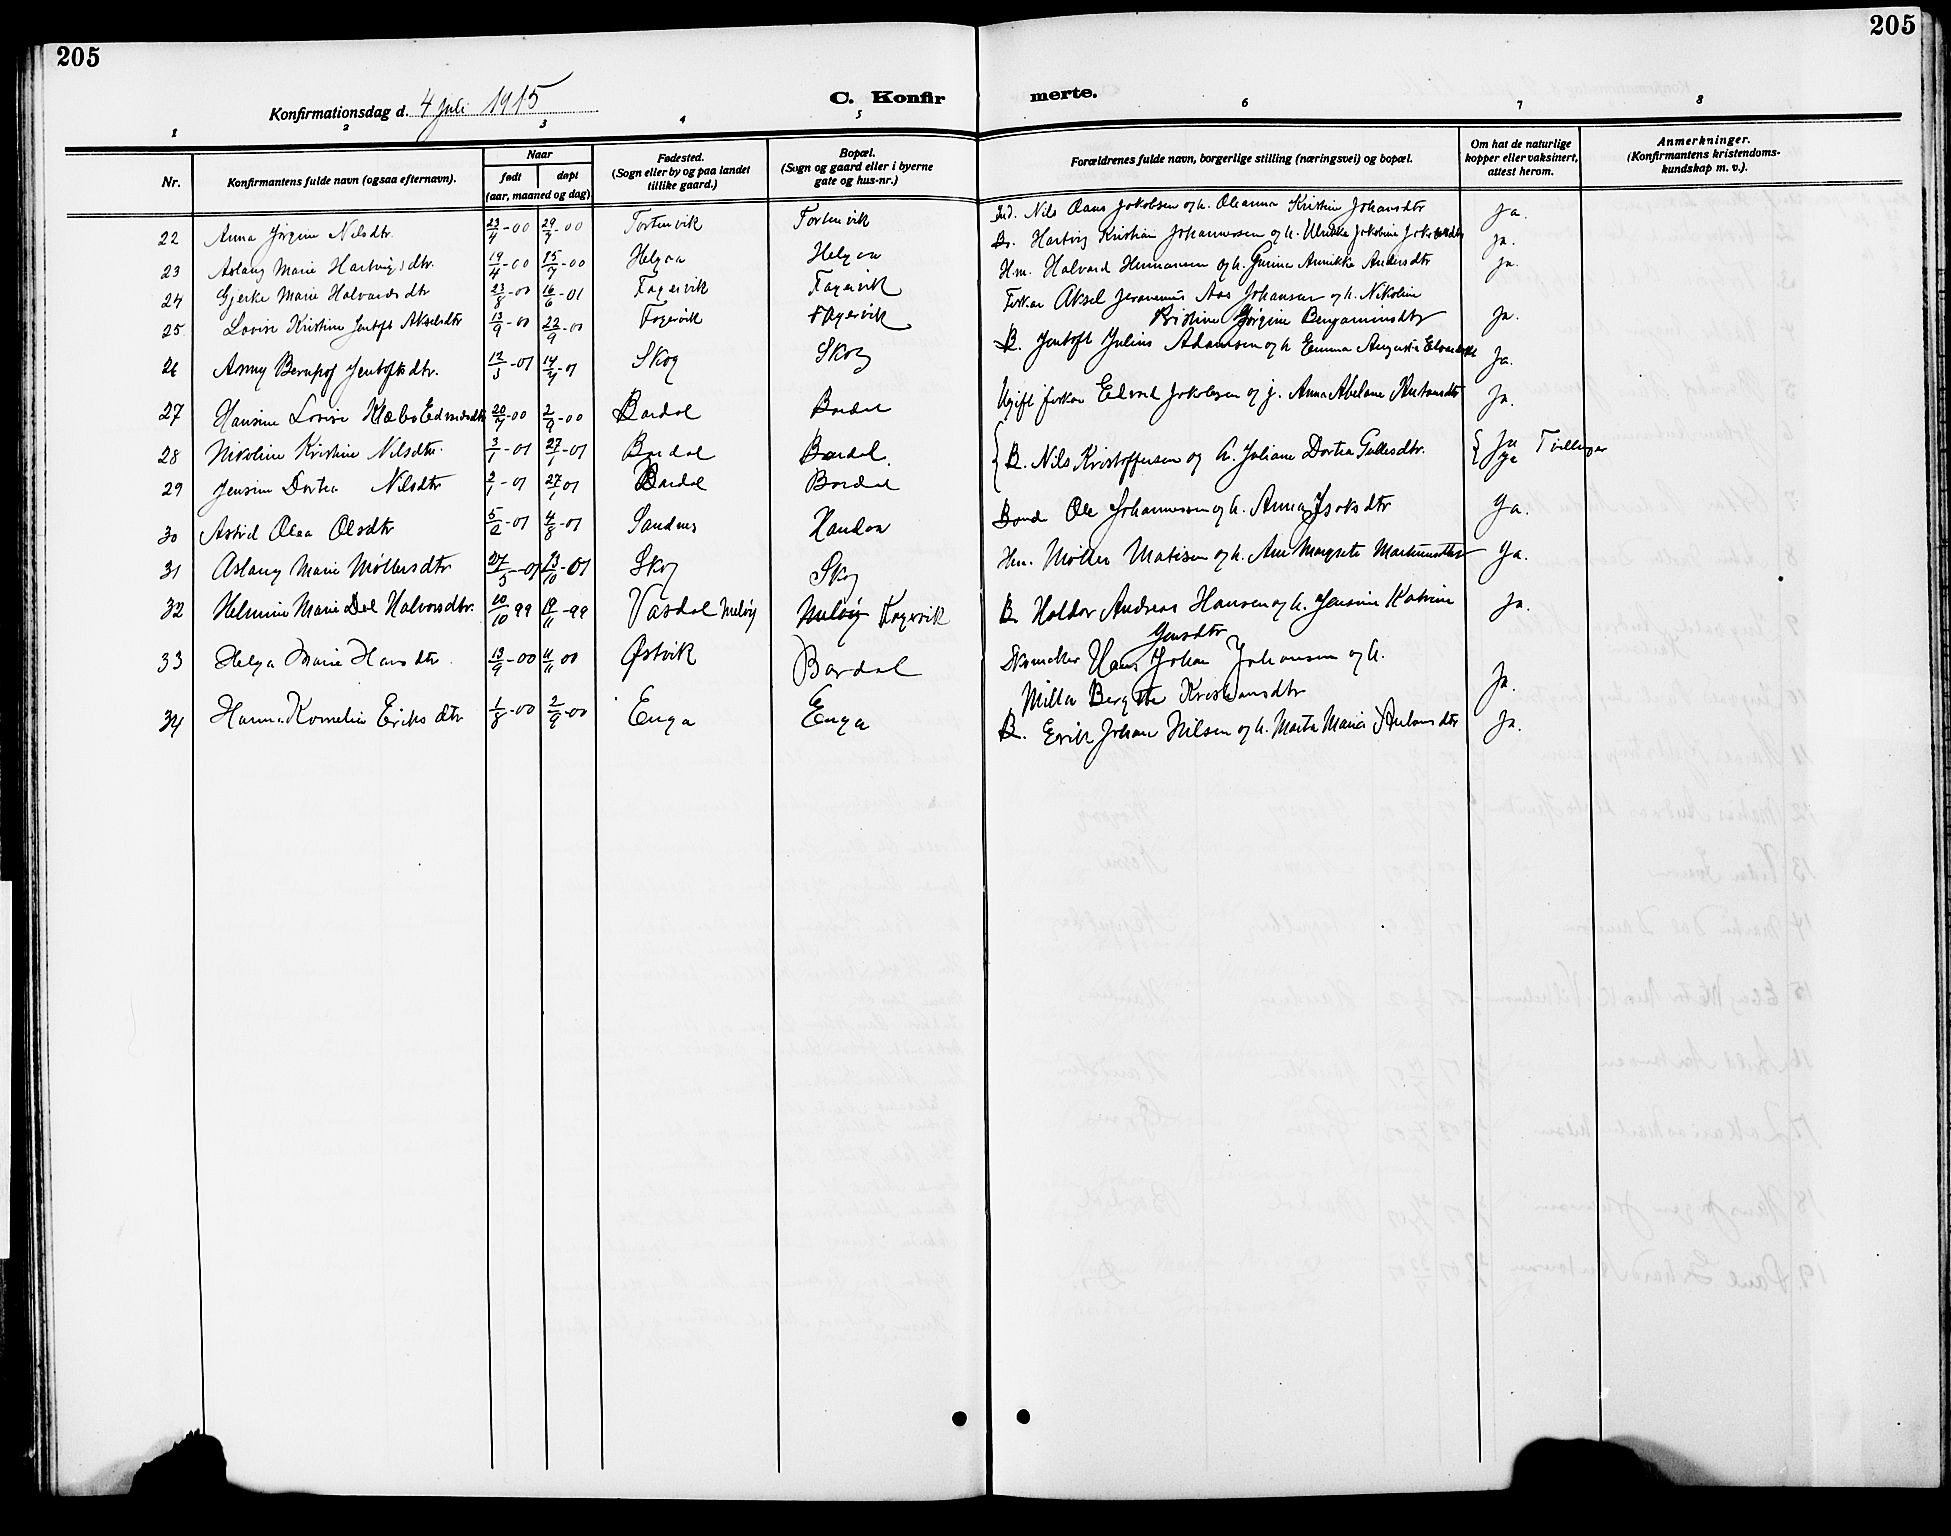 205
205
Konfirmationsdag d. 4 juli 1915
C. Konfir merte.
1 2 3 4 5 6 7 8
Nr.
Konfirmantens fulde navn (ogsaa efternavn).
Naar
født døpt
(aar, maaned og dag)
Fødested.
(Sogn eller by og paa landet
tillike gaard.)
Bopæl.
(Sogn og gaard eller i byerne
gate og hus-nr.)
Forældrenes fulde navn, borgerlige stilling (næringsvei) og bopæl.
Om hat de naturlige
kopper eller vaksinert,
attest herom.
Anmerkninger.
(Konfirmantens kristendoms-
kundskap m. v.).
22 Anna Jørgine Nilsdtr. 23/4-00 29/7-00 Fortenvik Fortenvik Ind. Nils Aans Jakobsen og h. Oleanna Kristine Johansdtr Ja.
23 Aslaug Marie Hartvigsdtr. 19/4-00 15/7-00 Helgaa Helgaa B. Hartvig Kristian Johannessen og h. Ulrikke Jakobine Jakobsdtr Ja.
24 Gjerke Marie Halvardsdtr 23/8-00 16/6-01 Fagervik Fagervik Hm. Halvard Hermansen og h. Gurine Annikke Andersdtr Ja.
25 Lovise Kristine Jentoft Akselsdtr 13/9-00 22/9-00 Fagervik Fagervik Fisker Aksel Jeronimus Aas Johansen og h. Nikoline
Kristine Jørgine Benjaminsdtr Ja.
26 Anny Bernhof Jentoftsdtr. 12/3-01 14/4-01 Skog Skog B. Jentoft Julius Adamsen og h Emma Augusta Edvardsdtr Ja.
27 Hansine Lovise Klæbo Edvardsdtr 20/7-00 2/9-00 Bardal Bardal Ugift fisker Edvard Jakobsen og p. Anna Abelone Antonsdtr Ja.
28 Nikoline Kristine Nilsdtr. 3/1-01 27/1-01 Bardal Bardal. B. Nils Kristoffersen og h. Juliane Dortea Pallesdtr. Ja Tvillinger
29 Jensine Dortea Nilsdtr 2/1-01 27/1 01 Bardal Bardal Ja
30 Astrid Olea Olsdtr 5/2-01 4/8-01 Sandnes Handaa Bonde Ole Johannessen og h. Anna Isaksdtr Ja.
31 Aslaug Marie Møllersdtr 27/5-01 13/10-01 Skog Skog Hm. Møller Matisen og h. Ane Margrete Martinusdtr Ja.
32 Helmine Marie Dal Halvorsdtr. 10/10 99 19/11-99 Vasdal Meløy Meløy Fagervik B. Haldor Andreas Hansen og h. Jensine Katrine
Jensdtr Ja.
33 Helga Marie Hansdtr. 13/9-00 11/11 00 Østvik Bardal Skomaker Hans Johan Johansen og h.
Milla Bergitte Kristiansdtr Ja.
34 Hanna Kornelie Eriksdtr 1/8-00 2/9-00 Enga Enga B. Erik Johan Nilsen og h. Marta Maria Antonsdtr Ja.